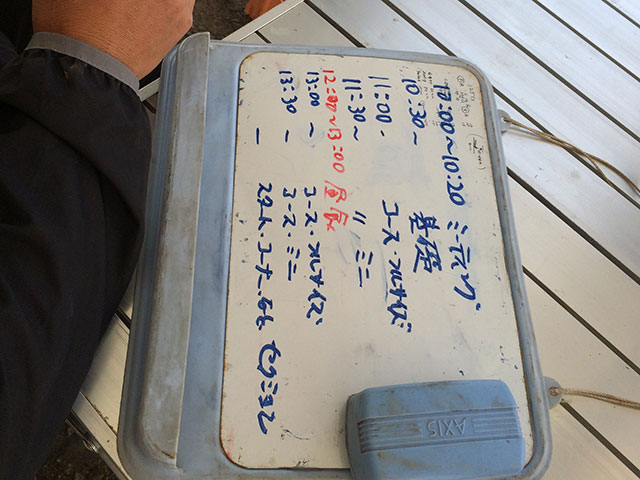 10:00~10:20 ミーティング
10:30~ 基礎
11:00- コース・フルサイズ
11:30~ 〃 ミニ
12:00~13:00 昼食
13:00~ コース・フルサイズ
13:30~ コース・ミニ
- スタート・コーナー
セクション
AXIS